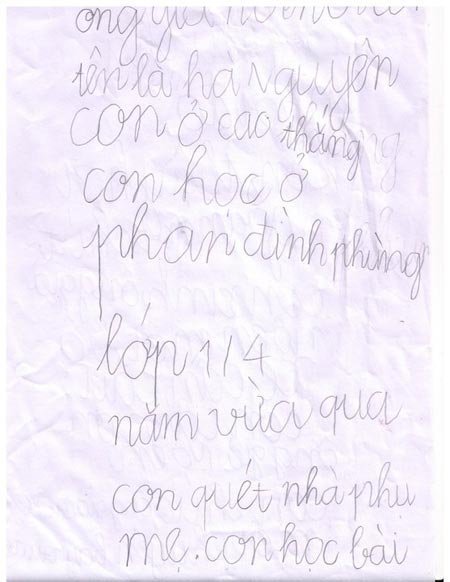 ông già nô en ơi
tên là hạ nguyên
con ở cao thắng
con học ở
phan đình phùng
lớp 1/4
năm vừa qua
con quét nhà phụ
mẹ. con học bài